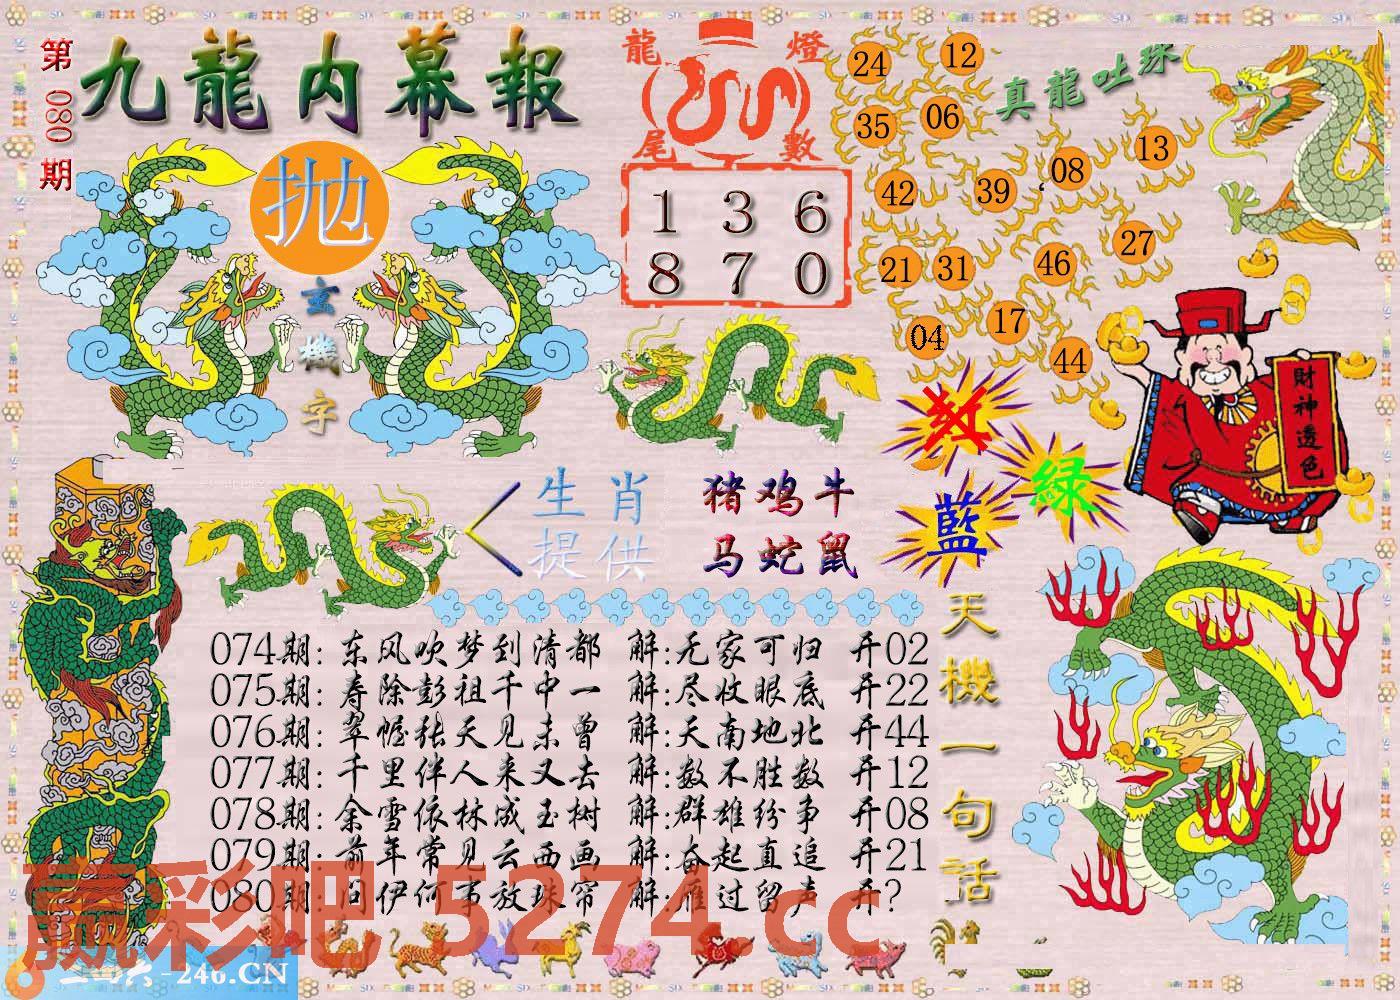 第080期
九龍内幕報
抛
玄機字
龍燈
尾數
1 3 6
8 7 0
真龍吐珠
24 12
35 06
42 39 08 13
21 31 46 27
04 17 44
財神透色
紅
綠
藍
生肖提供
猪鸡牛
马蛇鼠
天機一句話
074期: 东风吹梦到清都 解:无家可归 开02
075期: 寿除彭祖千中一 解:尽收眼底 开22
076期: 翠幄张天见未曾 解:天南地北 开44
077期: 千里伴人来又去 解:数不胜数 开12
078期: 余雪依林成玉树 解:群雄纷争 开08
079期: 前年常见云西画 解:奋起直追 开21
080期: 问伊何事放珠帘 解:雁过留声 开?
赢彩吧 5274.cc
二四六-246.CN